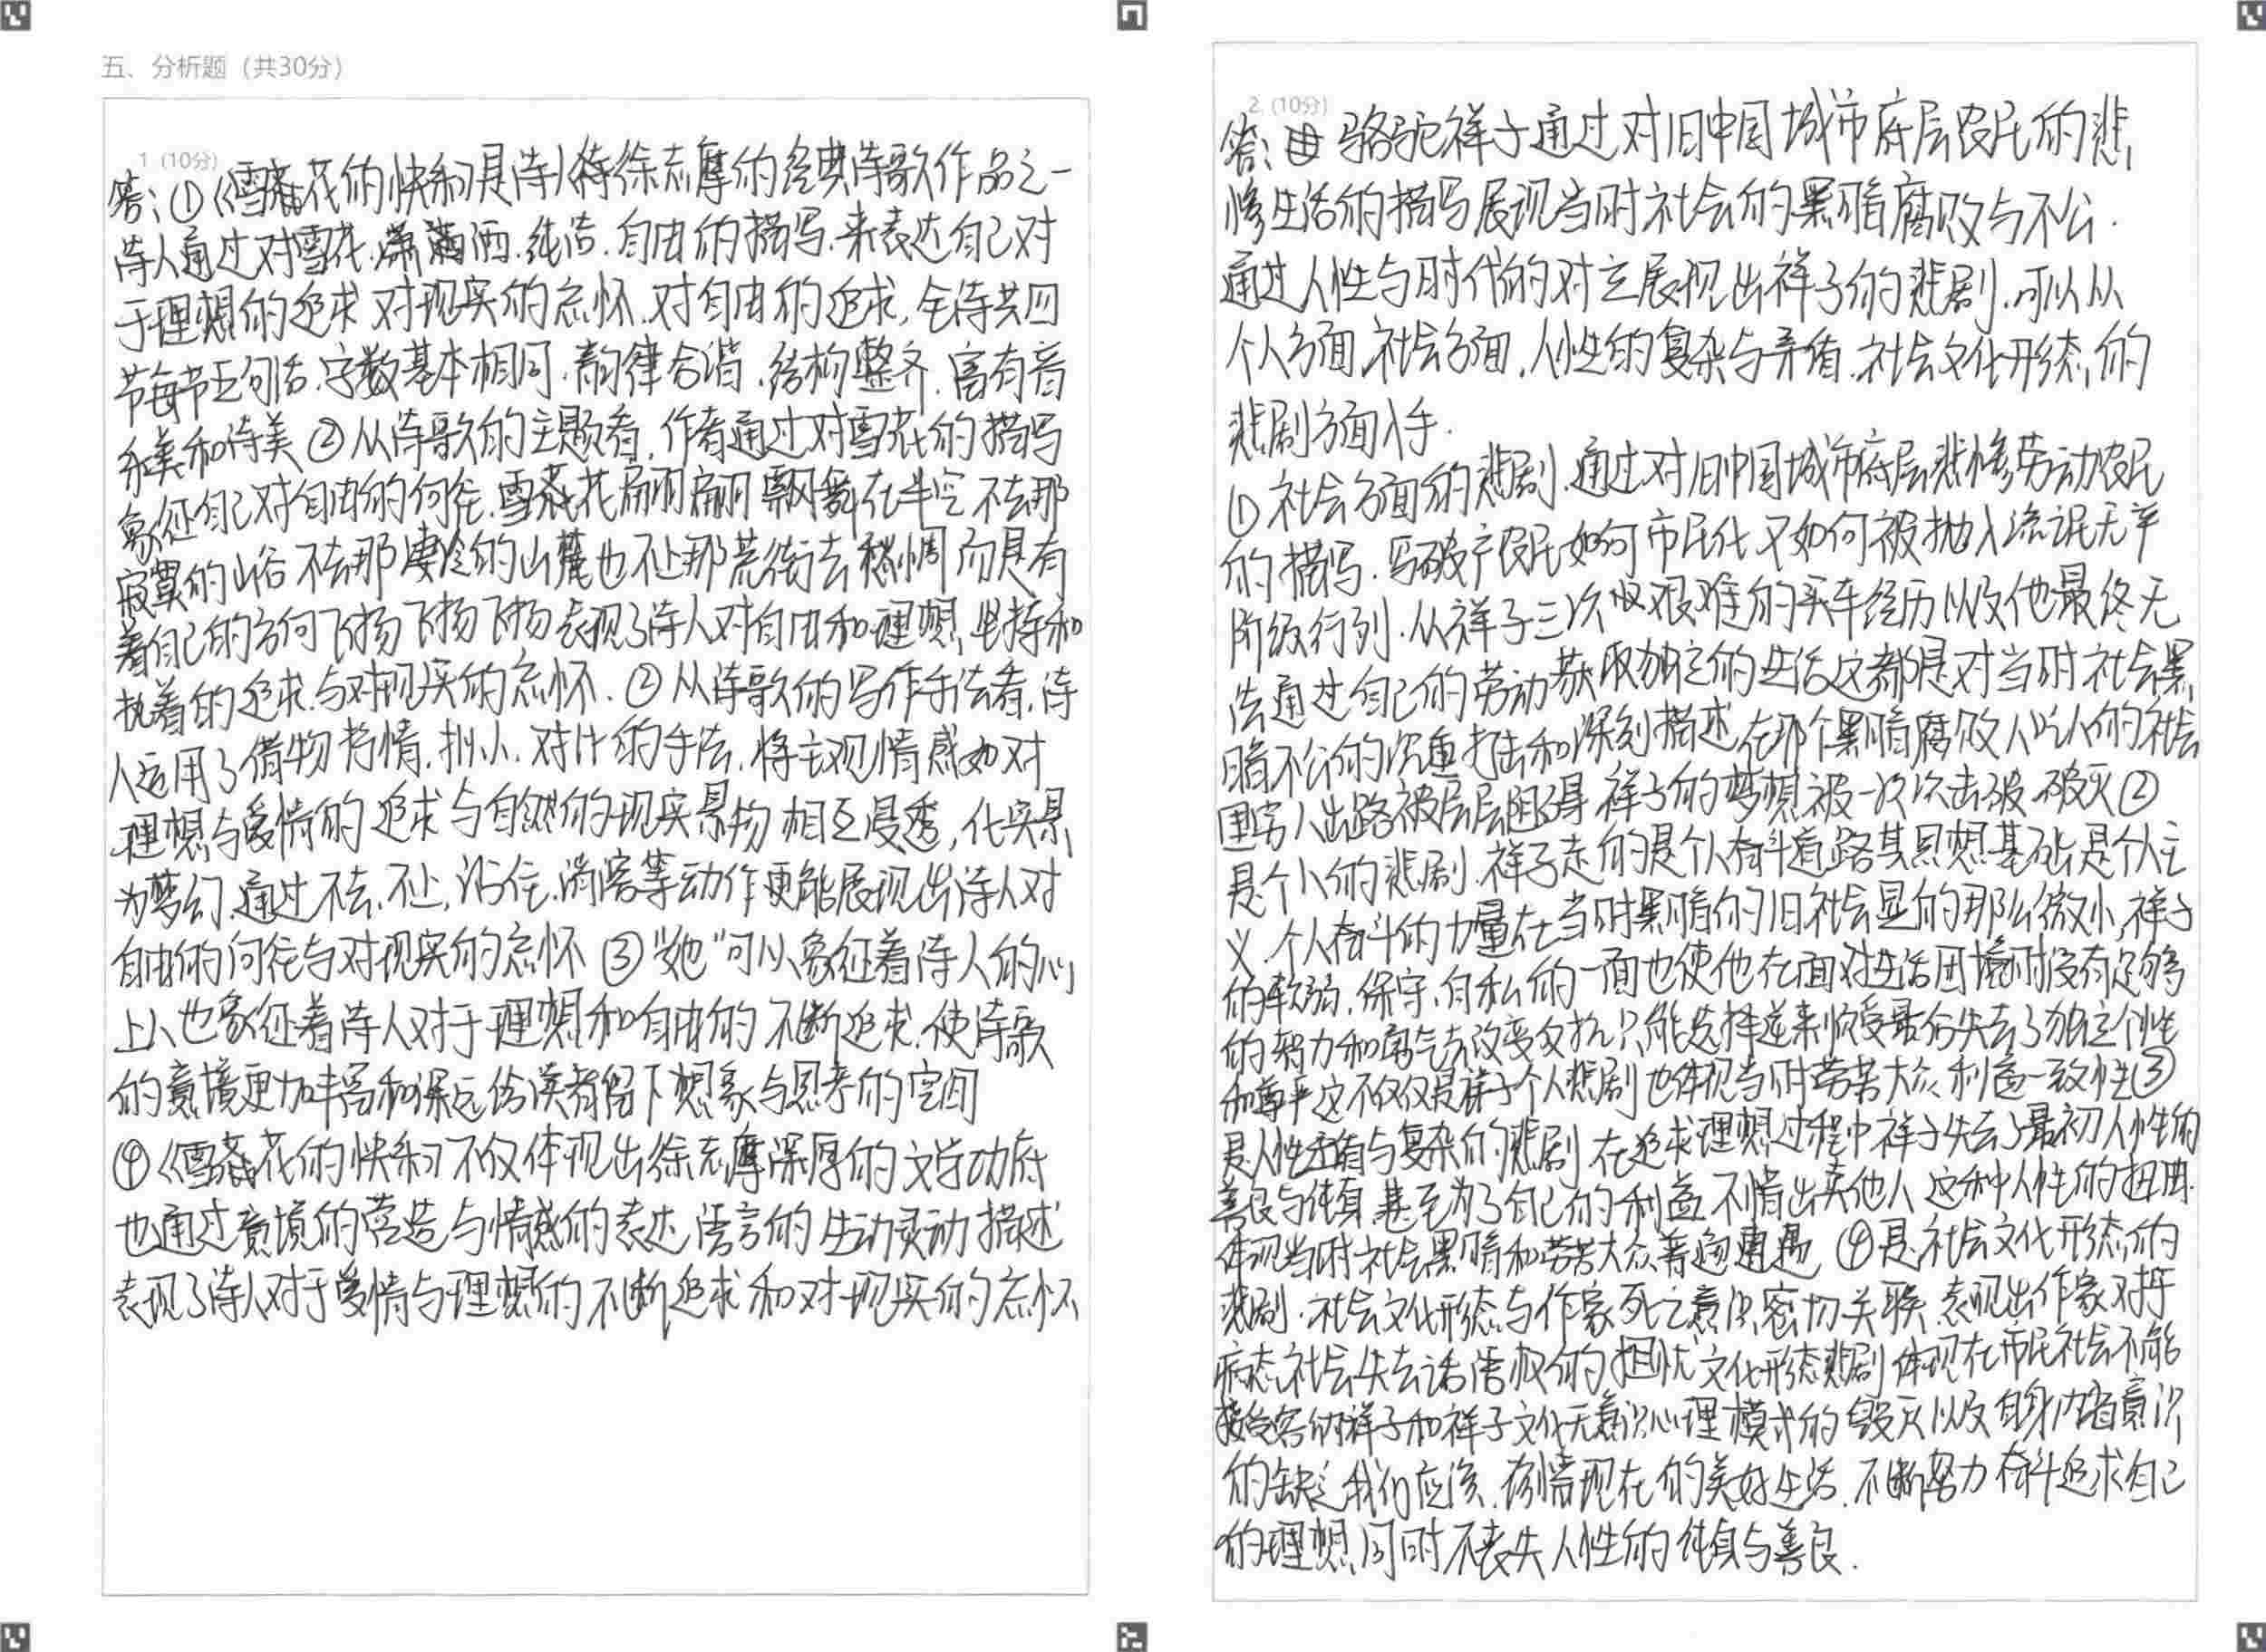 五、分析题（共30分）
1 (10分)
答：①《雪花的快乐》是诗人徐志摩的经典诗歌作品之一
诗人通过对雪花.潇洒.纯洁.自由的描写.来表达自己对
于理想的追求 对现实的忘怀.对自由的追求,全诗共四
节每节五句话.字数基本相同.韵律合谐.结构整齐.富有音
乐美和诗美 ②从诗歌的主题看.作者通过对雪花的描写
象征自己对自由的向往.雪花翩翩飘舞在半空 不去那
寂寞的山谷 不去那凄冷的山麓也不上那荒街去惆怅 而是有
着自己的方向飞扬飞扬飞扬表现了诗人对自由和理想,坚持和
执着的追求与对现实的忘怀.②从诗歌的写作手法看.诗
人运用了借物抒情.拟人.对比的手法.将主观情感如对
理想与爱情的追求与自然的现实景物相互浸透,化实景
为梦幻.通过不去.不上,沾住.消溶等动作更能展现出诗人对
自由的向往与对现实的忘怀 ③“她”可以象征着诗人的心
上人也象征着诗人对于理想和自由的不断追求.使诗歌
的意境更加丰富和深远给读者留下想象与思考的空间
④《雪花的快乐》不仅体现出徐志摩深厚的文学功底
也通过意境的营造与情感的表达 语言的生动灵动描述
表现了诗人对于爱情与理想的不断追求和对现实的忘怀
2. (10分)
答: 骆驼祥子通过对旧中国城市底层农民的悲
惨生活的描写展现当时社会的黑暗腐败与不公.
通过人性与时代的对立展现出祥子的悲剧.可以从
个人方面.社会方面,人性的复杂与矛盾.社会文化形态的
悲剧方面入手.
①社会方面的悲剧.通过对旧中国城市底层悲惨劳动农民
的描写.写破产农民如何市民化又如何被抛入流氓无产
阶级行列.从祥子三次艰难的买车经历以及他最终无
法通过自己的劳动获取独立的生活这都是对当时社会黑
暗不公的沉重打击和深刻描述 在那个黑暗腐败人吃人的社会
里穷人出路被层层阻碍 祥子的梦想被一次次击破.破灭②
是个人的悲剧.祥子走的是个人奋斗道路其思想基础是个人主
义.个人奋斗的力量在当时黑暗的旧社会显的那么微小,祥子
的软弱.保守.自私的一面也使他在面对生活困境时没有足够
的努力和勇气去改变反抗只能选择逆来顺受最后失去了独立个性
和尊严这不仅仅是祥子个人悲剧也体现当时劳苦大众利益一致性③
是人性矛盾与复杂的悲剧 在追求理想过程中祥子失去了最初人性的
善良与纯真.甚至为了自己的利益不惜出卖他人 这种人性的扭曲.
体现当时社会黑暗和劳苦大众普遍遭遇 ④是社会文化形态的
悲剧.社会文化形态与作家死亡意识密切关联.表现出作家对于
病态社会失去话语权的担忧 文化形态悲剧体现在市民社会不能
接受容纳祥子和祥子文化无意识心理模式的毁灭以及自身内省意识
的缺乏我们应该.珍惜现在的美好生活.不断努力奋斗追求自己
的理想同时不丧失人性的纯真与善良.